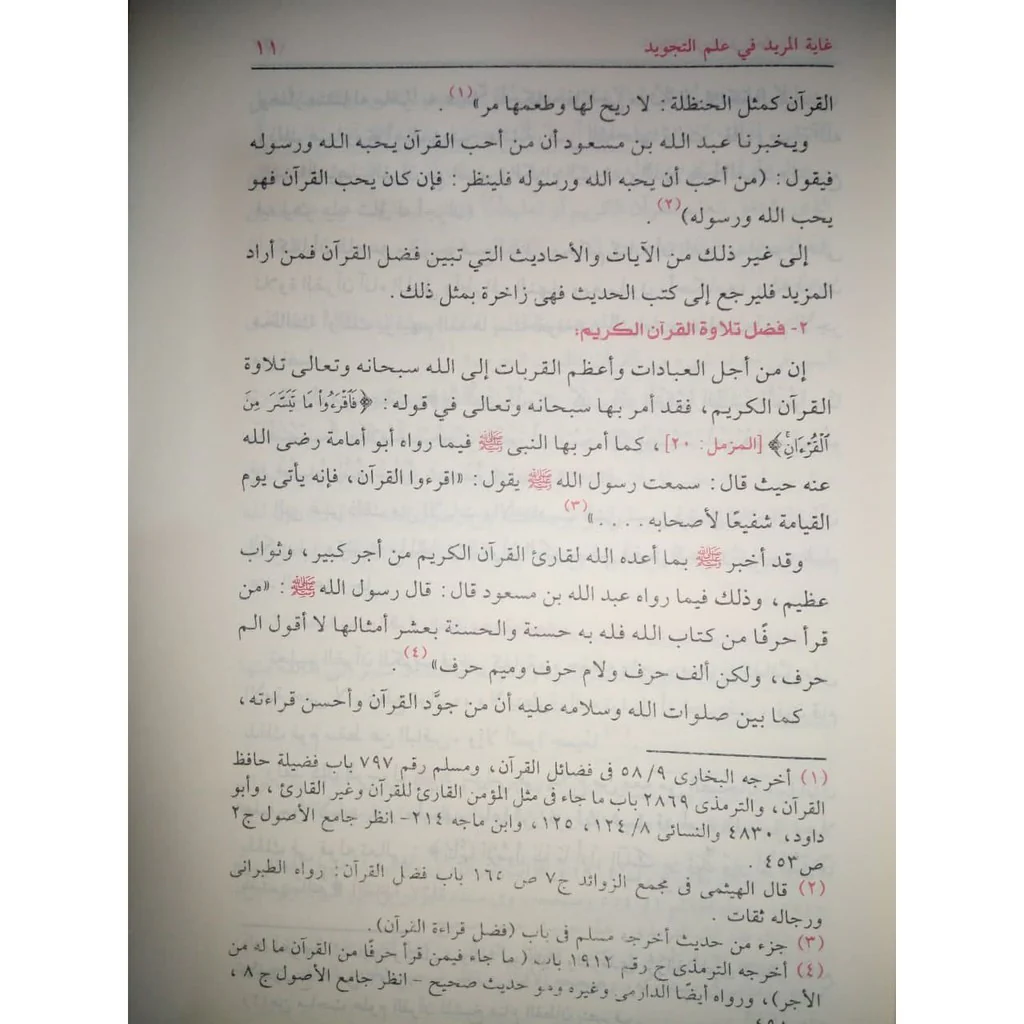 غاية المريد في علم التجويد ١١
القرآن كمثل الحنظلة: لا ريح لها وطعمها مر»(١).
ويخبرنا عبد الله بن مسعود أن من أحب القرآن يحبه الله ورسوله
فيقول: (من أحب أن يحبه الله ورسوله فلينظر: فإن كان يحب القرآن فهو
يحب الله ورسوله)(٢).
إلى غير ذلك من الآيات والأحاديث التي تبين فضل القرآن فمن أراد
المزيد فليرجع إلى كتب الحديث فهى زاخرة بمثل ذلك.
٢- فضل تلاوة القرآن الكريم:
إن من أجل العبادات وأعظم القربات إلى الله سبحانه وتعالى تلاوة
القرآن الكريم، فقد أمر بها سبحانه وتعالى في قوله: ﴿فَٱقْرَءُوا۟ مَا تَيَسَّرَ مِنَ
ٱلْقُرْءَانِۚ﴾ [المزمل: ٢٠]، كما أمر بها النبى ﷺ فيما رواه أبو أمامة رضى الله
عنه حيث قال: سمعت رسول الله ﷺ يقول: «اقرءوا القرآن، فإنه يأتى يوم
القيامة شفيعًا لأصحابه....»(٣)
وقد أخبر ﷺ بما أعده الله لقارئ القرآن الكريم من أجر كبير، وثواب
عظيم، وذلك فيما رواه عبد الله بن مسعود قال: قال رسول الله ﷺ: «من
قرأ حرفًا من كتاب الله فله به حسنة والحسنة بعشر أمثالها لا أقول الم
حرف، ولكن ألف حرف ولام حرف وميم حرف»(٤).
كما بين صلوات الله وسلامه عليه أن من جوَّد القرآن وأحسن قراءته،
(١) أخرجه البخارى ٥٨/٩ فى فضائل القرآن، ومسلم رقم ٧٩٧ باب فضيلة حافظ
القرآن، والترمذى ٢٨٦٩ باب ما جاء فى مثل المؤمن القارئ للقرآن وغير القارئ، وأبو
داود، ٤٨٣٠ والنسائى ٨/ ١٢٤، ١٢٥، وابن ماجه ٢١٤- انظر جامع الأصول ج٢
ص ٤٥٣.
(٢) قال الهيثمى فى مجمع الزوائد ج٧ ص ١٦٥ باب فضل القرآن: رواه الطبرانى
ورجاله ثقات.
(٣) جزء من حديث أخرجه مسلم فى باب (فضل قراءة القرآن).
(٤) أخرجه الترمذى ج رقم ١٩١٢ باب ( ما جاء فيمن قرأ حرفًا من القرآن ما له من
الأجر)، ورواه أيضًا الدارمى وغيره وهو حديث صحيح - انظر جامع الأصول ج ٨،